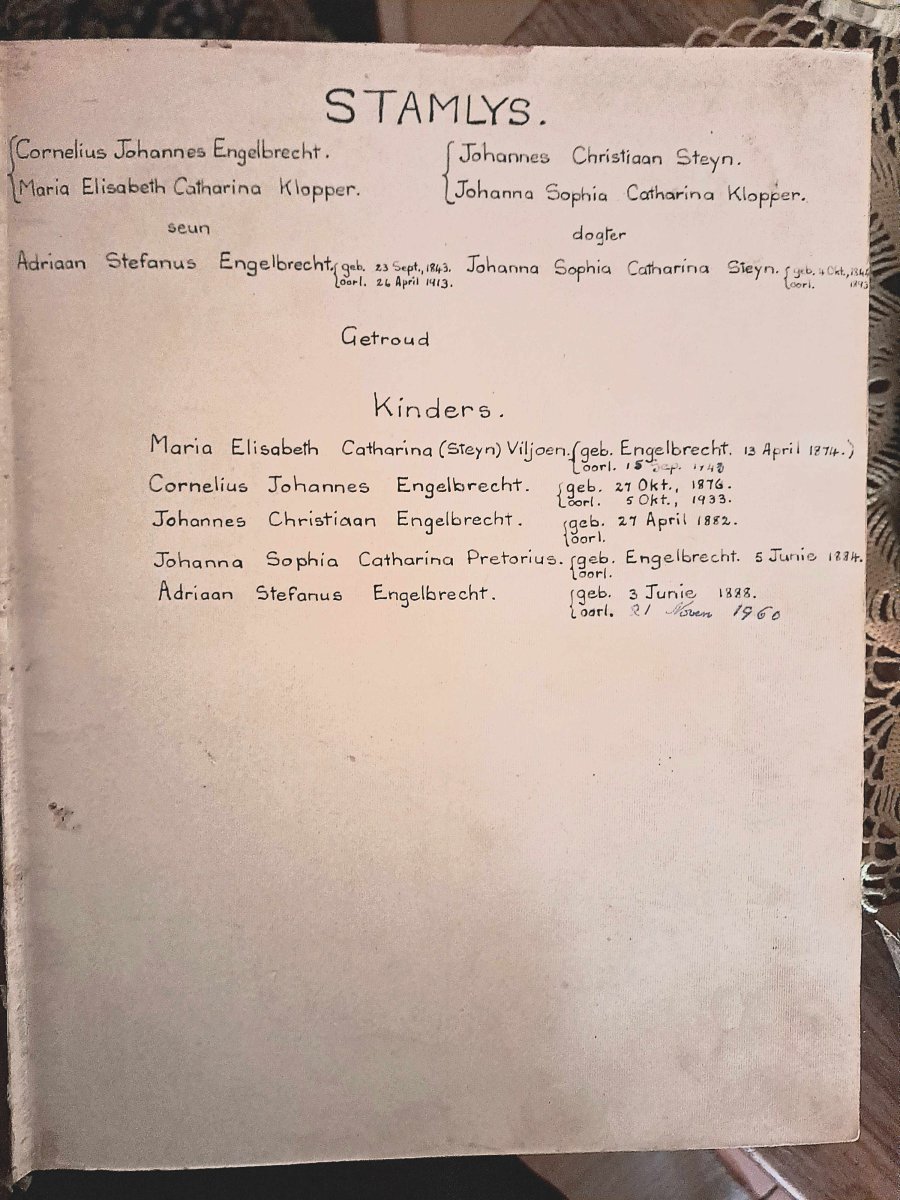 STAMLYS.
Cornelius Johannes Engelbrecht.
Maria Elisabeth Catharina Klopper.
Johannes Christiaan Steyn.
Johanna Sophia Catharina Klopper.
seun
dogter
Adriaan Stefanus Engelbrecht. geb. 23 Sept., 1843.
oorl. 26 April 1913.
Johanna Sophia Catharina Steyn. geb. 4 Okt.,
oorl. 1893
Getroud
Kinders.
Maria Elisabeth Catharina (Steyn) Viljoen. (geb. Engelbrecht. 13 April 1874.)
oorl. 15 Sep. 1948
Cornelius Johannes Engelbrecht. geb. 27 Okt., 1876.
oorl. 5 Okt., 1933.
Johannes Christiaan Engelbrecht. geb. 27 April 1882.
oorl.
Johanna Sophia Catharina Pretorius. geb. Engelbrecht. 5 Junie 1884.
oorl.
Adriaan Stefanus Engelbrecht. geb. 3 Junie 1888.
oorl. 21 Noven 1960